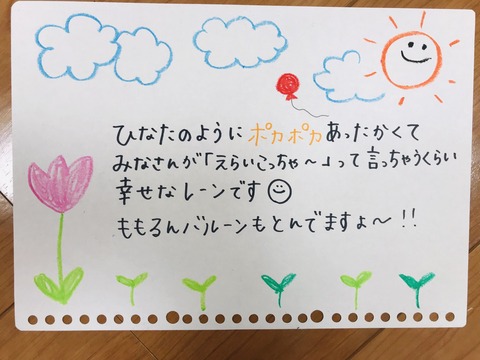 ひなたのように ポカポカ あったかくて
みなさんが「えらいこっちゃ〜」って言っちゃうくらい
幸せなレーンです☺
ももるんバルーンもとんでますよ〜!!